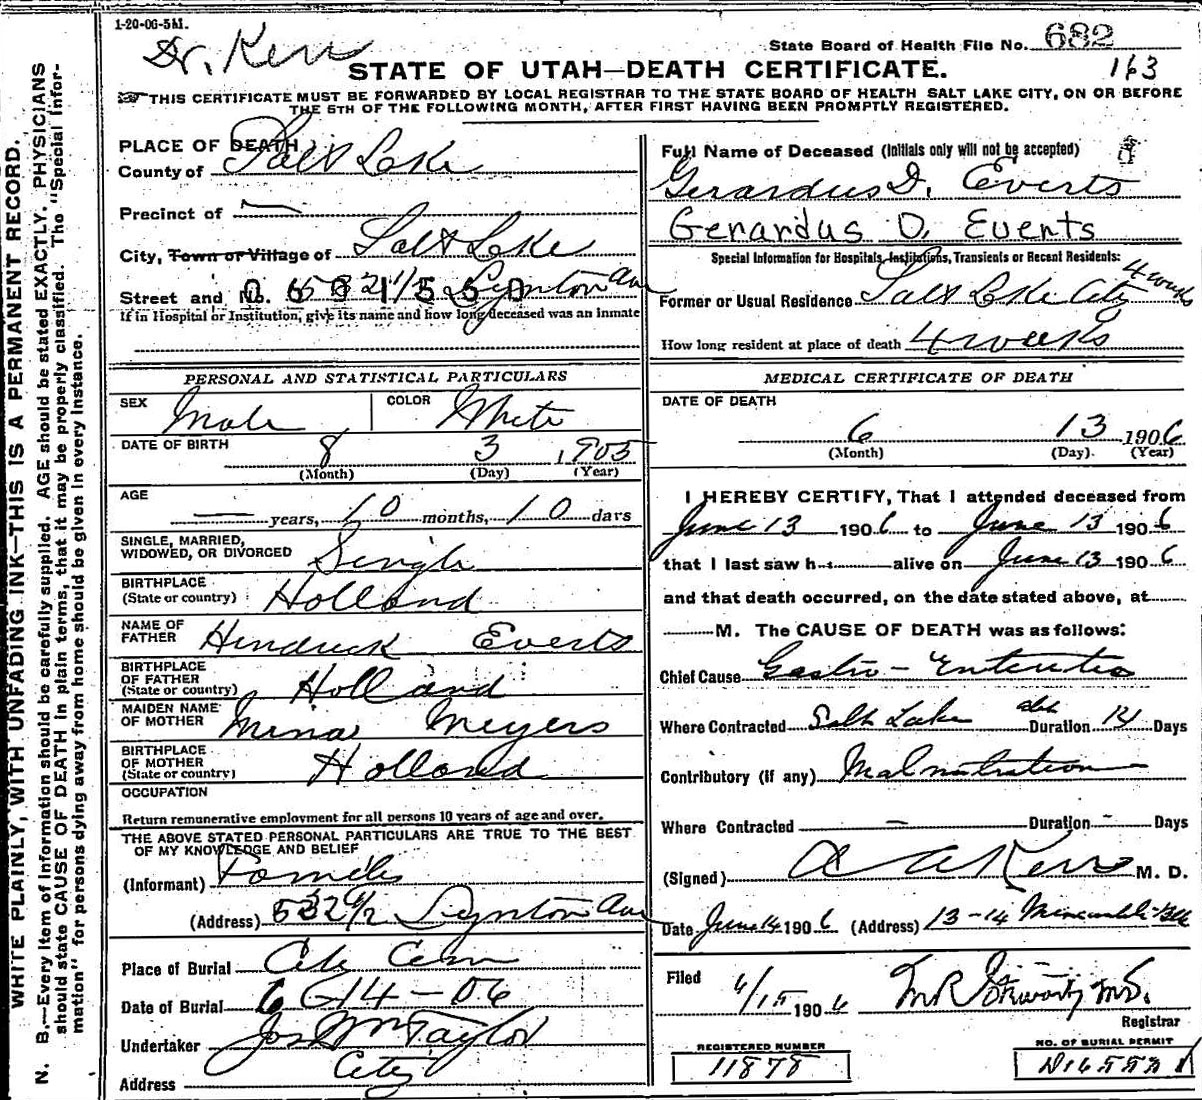 1-20-06-5M.
Dr. Kerr
State Board of Health File No. 682
STATE OF UTAH—DEATH CERTIFICATE.
163
THIS CERTIFICATE MUST BE FORWARDED BY LOCAL REGISTRAR TO THE STATE BOARD OF HEALTH SALT LAKE CITY, ON OR BEFORE
THE 5TH OF THE FOLLOWING MONTH, AFTER FIRST HAVING BEEN PROMPTLY REGISTERED.
WHITE PLAINLY, WITH UNFADING INK—THIS IS A PERMANENT RECORD.
N. B.—Every item of information should be carefully supplied. AGE should be stated EXACTLY. PHYSICIANS
should state CAUSE OF DEATH in plain terms, that it may be properly classified. The "Special Infor-
mation" for persons dying away from home should be given in every instance.
PLACE OF DEATH
County of Salt Lake
Precinct of —
City, Town or Village of Salt Lake
Street and No. Lynton Ave
0601560
If in Hospital or Institution, give its name and how long deceased was an inmate
PERSONAL AND STATISTICAL PARTICULARS
SEX Male COLOR White
DATE OF BIRTH 8 3 1905
(Month) (Day) (Year)
AGE
— years, 10 months, 10 days
SINGLE, MARRIED,
WIDOWED, OR DIVORCED Single
BIRTHPLACE
(State or country) Holland
NAME OF
FATHER Hindrick Everts
BIRTHPLACE
OF FATHER
(State or country) Holland
MAIDEN NAME
OF MOTHER Mina Meyers
BIRTHPLACE
OF MOTHER
(State or country) Holland
OCCUPATION
Return remunerative employment for all persons 10 years of age and over.
THE ABOVE STATED PERSONAL PARTICULARS ARE TRUE TO THE BEST
OF MY KNOWLEDGE AND BELIEF
(Informant) Family
(Address) Lynton Ave
Place of Burial City Cem
Date of Burial 6 14 - 06
Undertaker Jos Wm Taylor
Address City
Full Name of Deceased (Initials only will not be accepted)
Gerardus D. Everts
Gerardus D. Everts
Special Information for Hospitals, Institutions, Transients or Recent Residents:
4 weeks
Former or Usual Residence Salt Lake City
How long resident at place of death 4 weeks
MEDICAL CERTIFICATE OF DEATH
DATE OF DEATH
6 13 1906
(Month) (Day). (Year)
I HEREBY CERTIFY, That I attended deceased from
June 13 190 6 to June 13 190 6
that I last saw h alive on June 13 190 6
and that death occurred, on the date stated above, at
M. The CAUSE OF DEATH was as follows:
Chief Cause Gastro - Enteritis
Where Contracted Salt Lake abt Duration 14 Days
Contributory (if any) Malnutrition
Where Contracted — Duration - Days
(Signed) A A Kerr M. D.
Date June 14 190 6 (Address) 13-14
Filed 6/15 190 6 M.D.
Registrar
REGISTERED NUMBER
11878
NO. OF BURIAL PERMIT